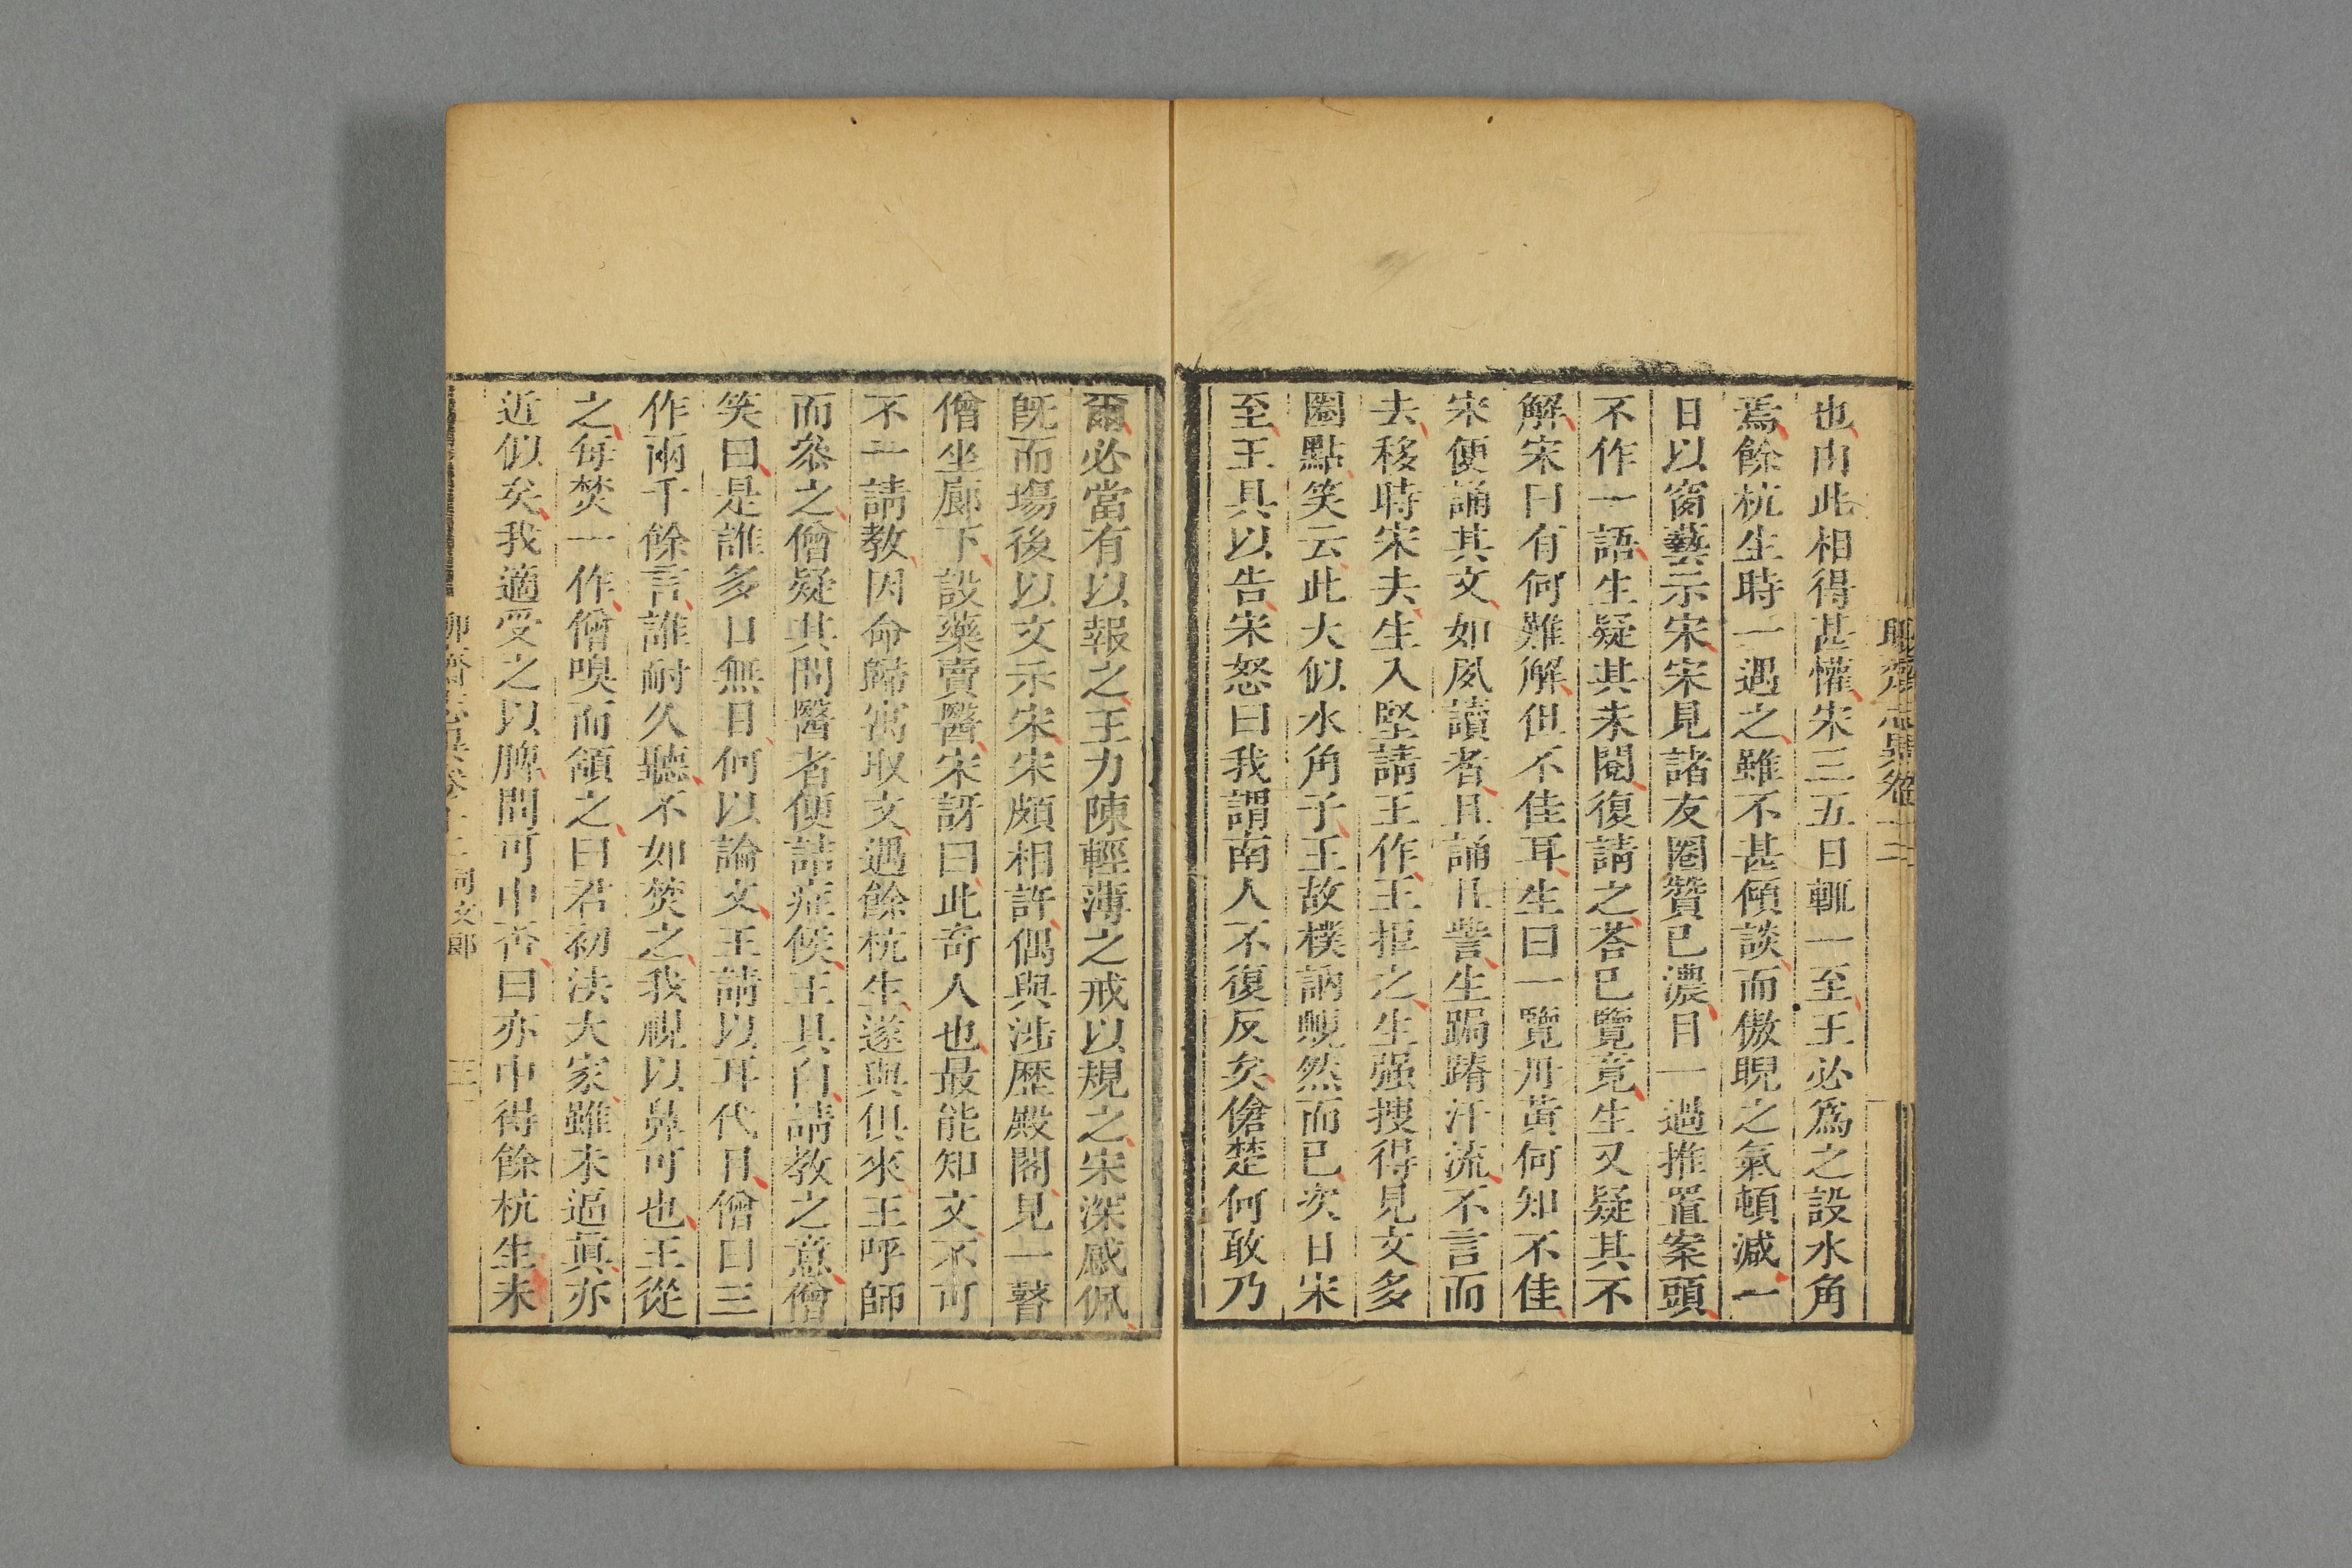 聊齋志異卷十二
也由此相得甚懽宋三五日輒一至王必爲之設水角
焉餘杭生時一遇之雖不甚傾談而傲睨之氣頓減一
日以窗藝示宋宋見諸友圈贊已濃目一過推置案頭
不作一語生疑其未閱復請之荅已覽竟生又疑其不
解宋曰有何難解但不佳耳生曰一覽丹黃何知不佳
宋便誦其文如夙讀者且誦且訾生跼蹐汗流不言而
去移時宋去生入堅請王作王拒之生强搜得見文多
圈點笑云此大似水角子王故樸訥覥然而已次日宋
至王具以告宋怒曰我謂南人不復反矣傖楚何敢乃
爾必當有以報之王力陳輕薄之戒以規之宋深感佩
旣而塲後以文示宋宋頗相許偶與涉歷殿閣見一瞽
僧坐廊下設藥賣醫宋訝曰此奇人也最能知文不可
不一請教因命歸寓取文遇餘杭生遂與俱來王呼師
而參之僧疑其問醫者便詰症候王具白請教之意僧
笑曰是誰多口無目何以論文王請以耳代目僧曰三
作兩千餘言誰耐久聽不如焚之我視以鼻可也王從
之每焚一作僧嗅而頷之曰君初法大家雖未逼眞亦
近似矣我適受之以脾問可中否曰亦中得餘杭生未
聊齋志異卷十二 司文郎 三